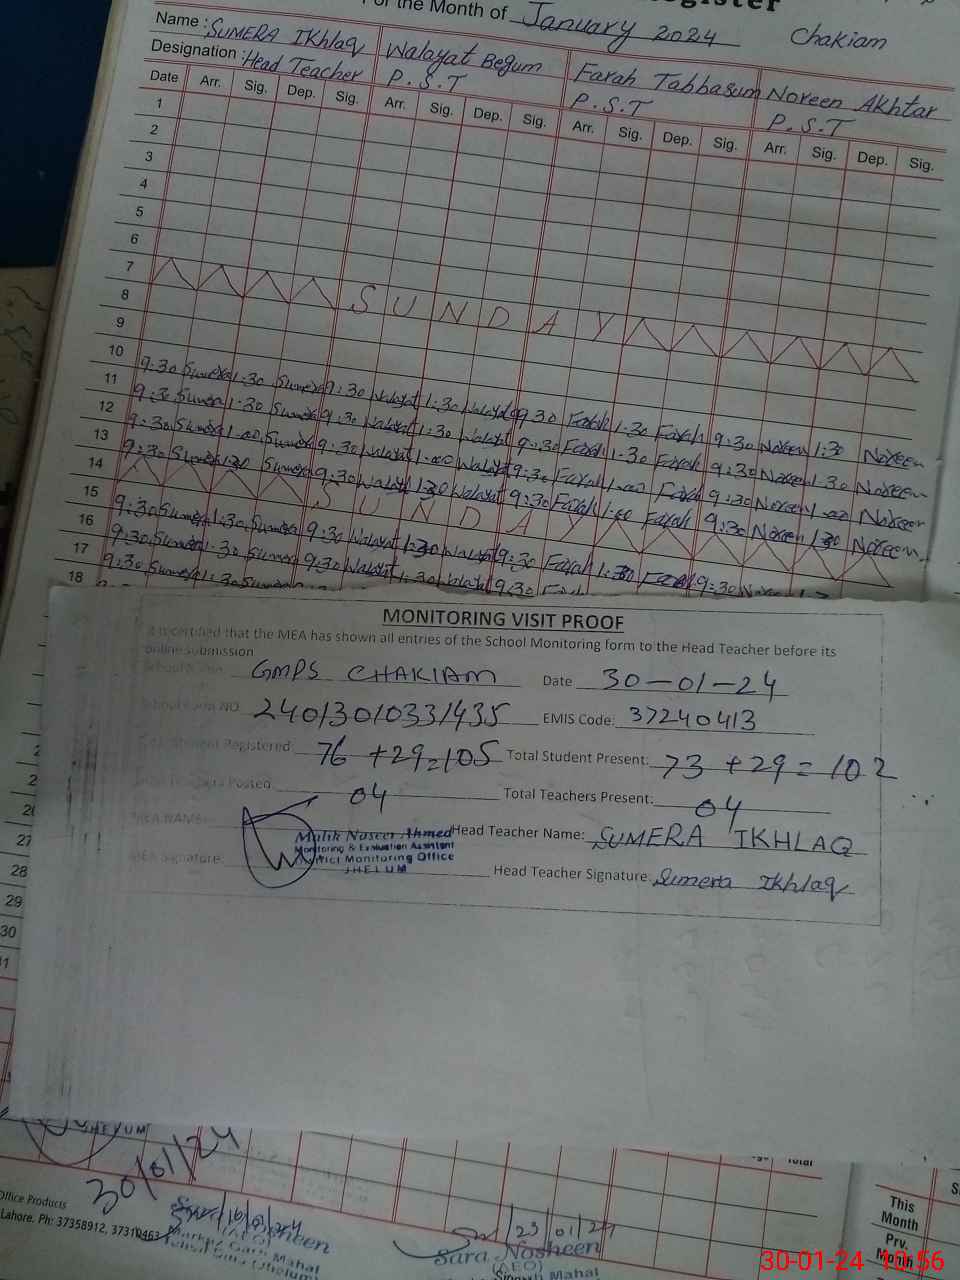 For the Month of January 2024 Chakiam
Name : SUMERA IKhlaq Walayat Begum Farah Tabbasum Noreen Akhtar
Designation : Head Teacher P.S.T P.S.T P.S.T
Date Arr. Sig. Dep. Sig. Arr. Sig. Dep. Sig. Arr. Sig. Dep. Sig. Arr. Sig. Dep. Sig.
1
2
3
4
5
6
7 SUNDAY
8
9
10 9:30 Sumera 1:30 Sumera 9:30 Walayat 1:30 Walayat 9:30 Farah 1:30 Farah 9:30 Noreen 1:30 Noreen
11 9:30 Sumera 1:30 Sumera 9:30 Walayat 1:30 Walayat 9:30 Farah 1:30 Farah 9:30 Noreen 1:30 Noreen
12 9:30 Sumera 1:00 Sumera 9:30 Walayat 1:00 Walayat 9:30 Farah 1:00 Farah 9:30 Noreen 1:00 Noreen
13 9:30 Sumera 1:30 Sumera 9:30 Walayat 1:30 Walayat 9:30 Farah 1:00 Farah 9:30 Noreen 1:30 Noreen
14 SUNDAY
15 9:30 Sumera 1:30 Sumera 9:30 Walayat 1:30 Walayat 9:30 Farah 1:30 Farah 9:30 Noreen
16 9:30 Sumera 1:30 Sumera 9:30 Walayat 1:30 Walayat 9:30
17 9:30 Sumera 1:30 Sumera
18
MONITORING VISIT PROOF
It is certified that the MEA has shown all entries of the School Monitoring form to the Head Teacher before its
online submission
GMPS CHAKIAM Date 30-01-24
24013010331435 EMIS Code: 37240413
Registered: 76 + 29 = 105 Total Student Present: 73 + 29 = 102
Posted: 04 Total Teachers Present: 04
MEA NAME: Malik Naseer Ahmed Head Teacher Name: SUMERA IKHLAQ
Monitoring & Evaluation Assistant
MEA Signature: District Monitoring Office Head Teacher Signature: Sumera Ikhlaq
JHELUM
27
28
29
30
JHELUM
30/01/24
Office Products
Lahore. Ph: 37358912, 37310463
23/01/24
Sara Nosheen
(AEO)
Mahal
Total
This
Month
Prv.
Month
30-01-24 10:56